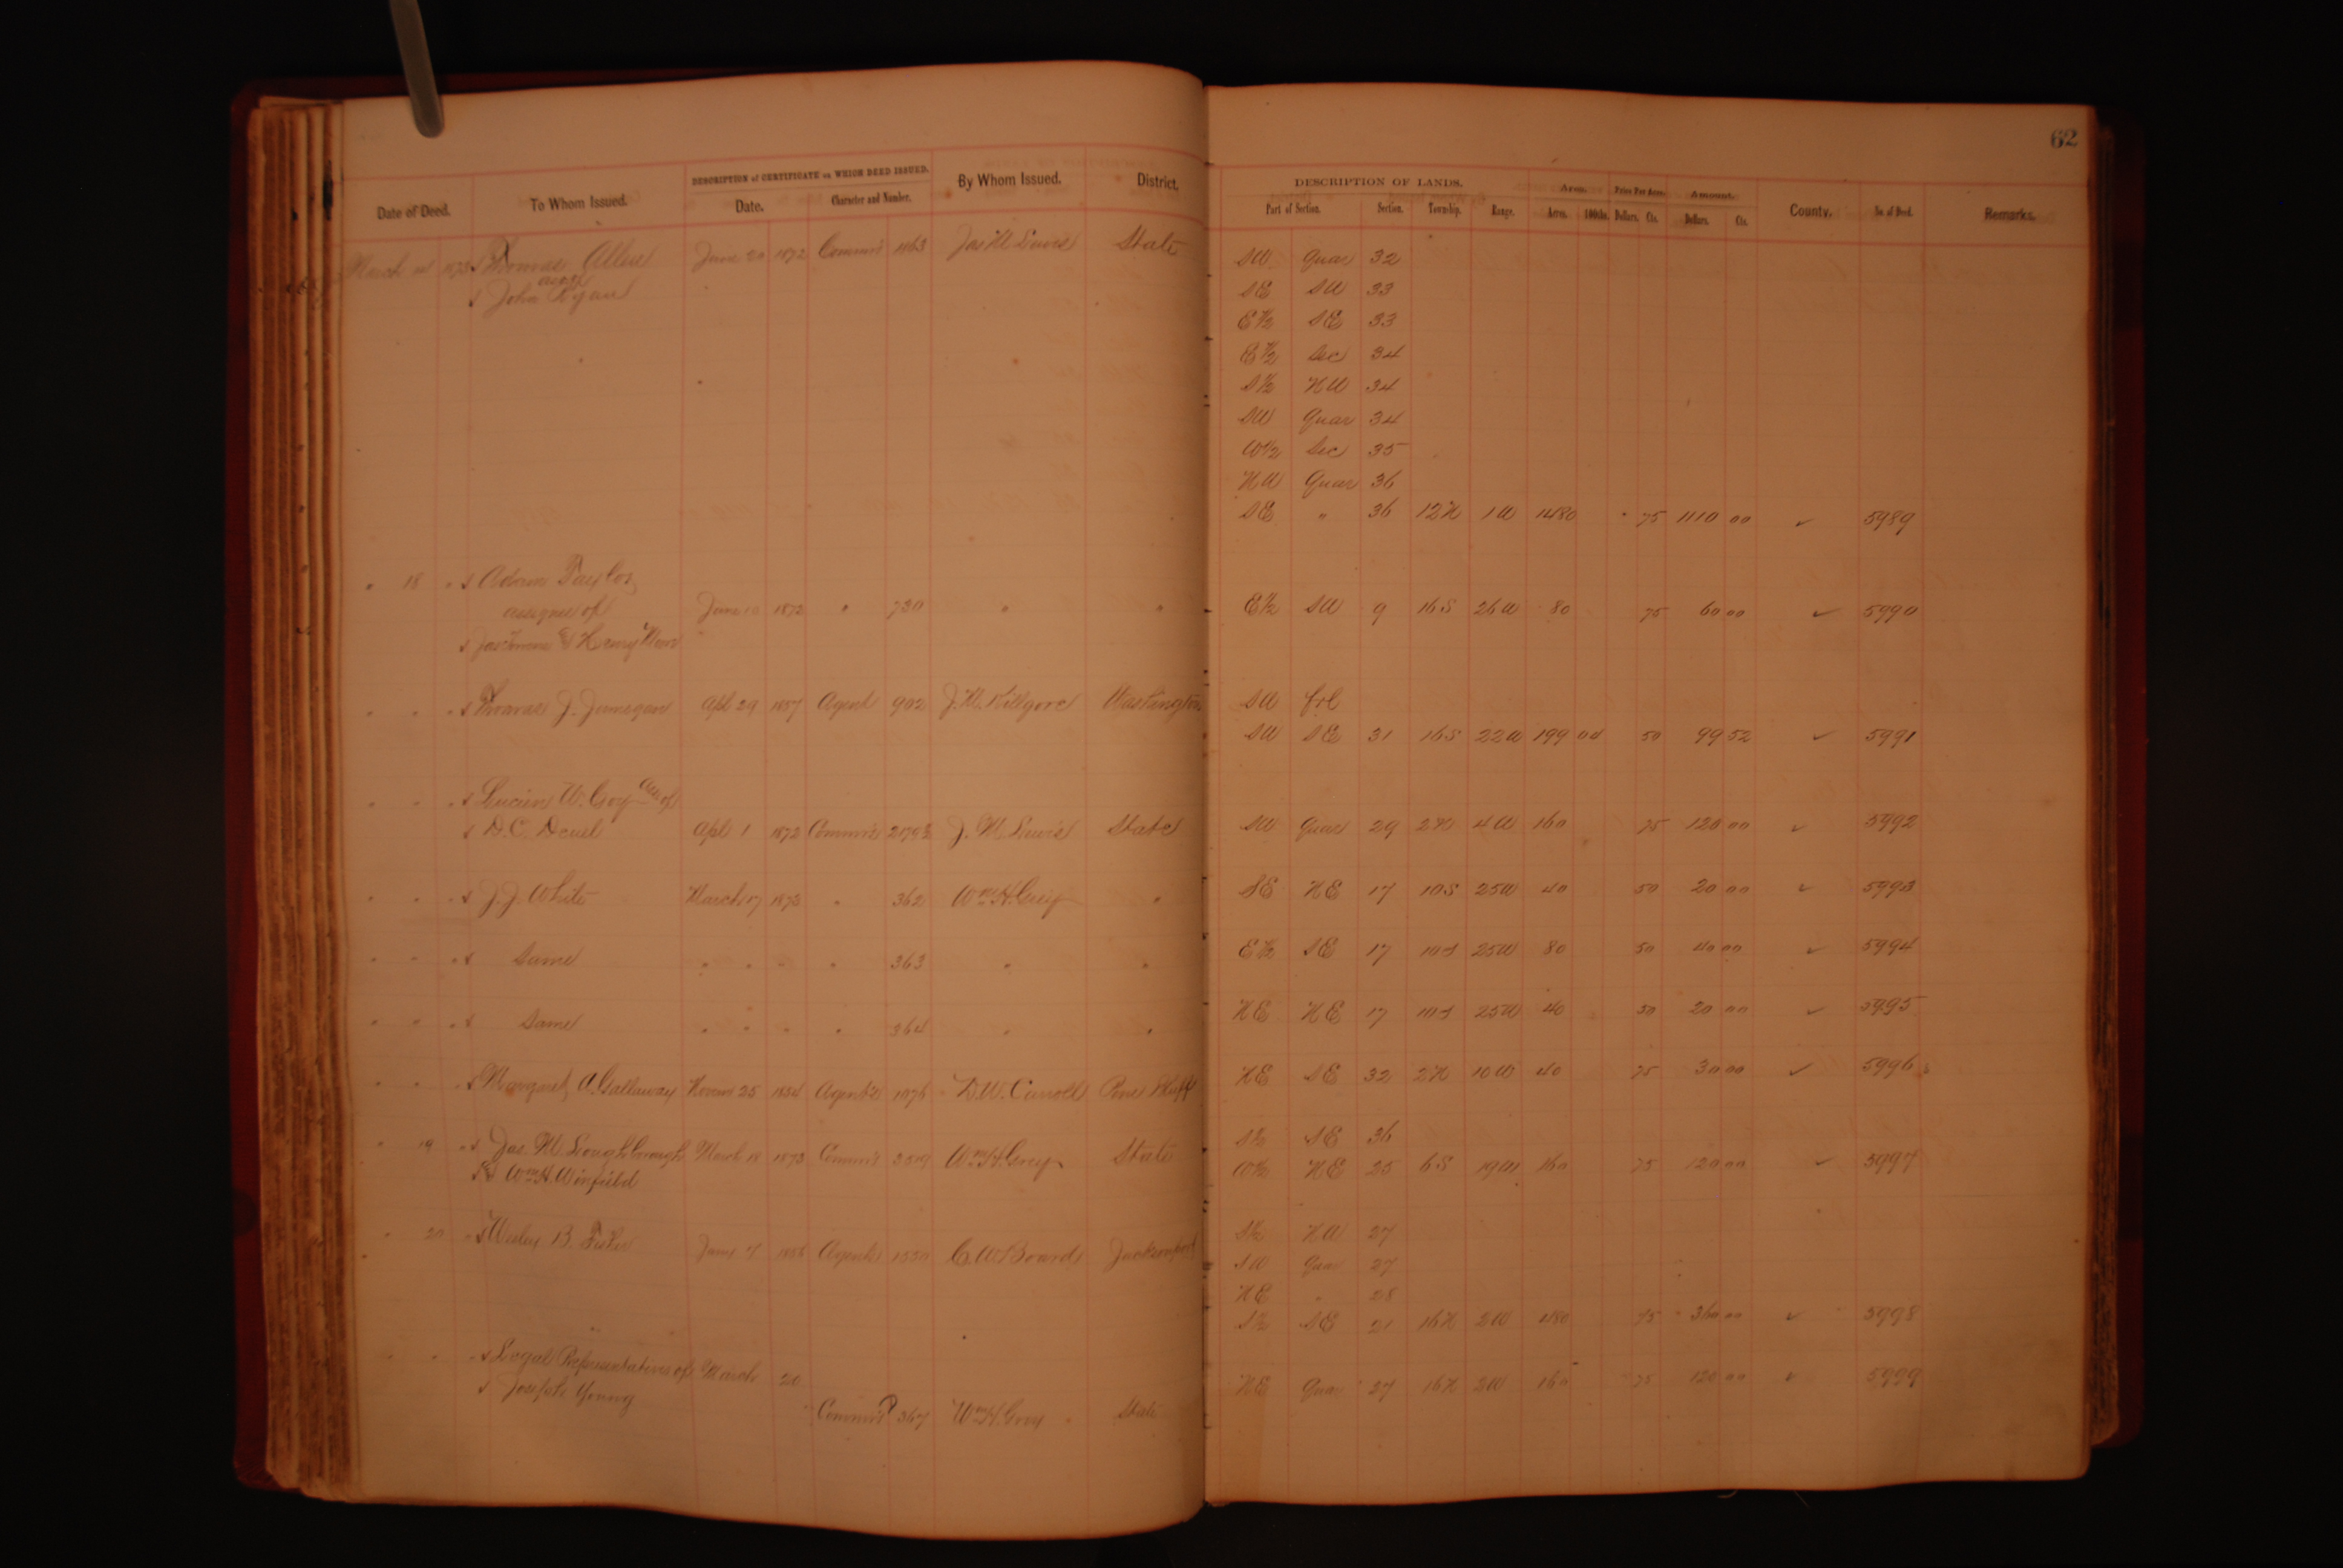 62
DESCRIPTION of CERTIFICATE on WHICH DEED ISSUED.
Date of Deed. To Whom Issued. Date. Character and Number. By Whom Issued. District.
DESCRIPTION OF LANDS. Area. Price Per Acre. Amount.
Part of Section. Section. Township. Range. Acres. 100ths. Dollars. Cts. Dollars. Cts. County. No. of Deed. Remarks.
March 1873 Thomas Allen June 20 1872 Comm's 1863 Jas M. Lewis State SW Quar 32
John Ryan SE SW 33
E½ SE 33
E½ Sec 34
S½ NW 34
SW Quar 34
W½ Sec 35
NW Quar 36
SE " 36 12N 1W 1480 75 1110 00 ✓ 5989
" 18 " Adam Taylor
assignee of June 10 1872 " 730 " " E½ SW 9 16S 26W 80 75 60 00 ✓ 5990
& Henry
" " " Thomas J. Jumegan Apl 29 1857 Agent 902 J. M. Killgore Washington SW frl
SW SE 31 16S 22W 199 04 50 99 52 ✓ 5991
" " " Lucien W. Coy ass of
D. C. Deuel Apl 1 1872 Comm's J. M. Lewis State SW Quar 29 2N 4W 160 75 120 00 ✓ 5992
" " " J. J. White March 17 1873 " 362 Wm H. Grey " SE NE 17 10S 25W 40 50 20 00 ✓ 5993
" " " Same " " " " 363 " " E½ SE 17 10S 25W 80 50 40 00 ✓ 5994
" " " Same " " " " 364 " " NE NE 17 10S 25W 40 50 20 00 ✓ 5995
" " " Margaret A. Gallaway 25 1854 Agent's 1076 D. W. Carroll Pine Bluff NE SE 32 2N 10W 40 75 30 00 ✓ 5996
" 19 " Jas. M. Loughborough March 18 1873 Comm's Wm H. Grey State S½ SE 36
& Wm H. Winfield W½ NE 25 6S 19W 160 75 120 00 ✓ 5997
" 20 " Wesley B. Fisher 7 1856 Agents 1550 C. W. Board Jacksonport S½ NW 27
SW Quar 27
NE " 28
S½ SE 21 16N 2W 480 75 360 00 ✓ 5998
" " " Legal Representatives of March 20 NE Quar 27 16N 2W 160 75 120 00 ✓ 5999
Joseph Young
Comm's 367 Wm H. Grey State